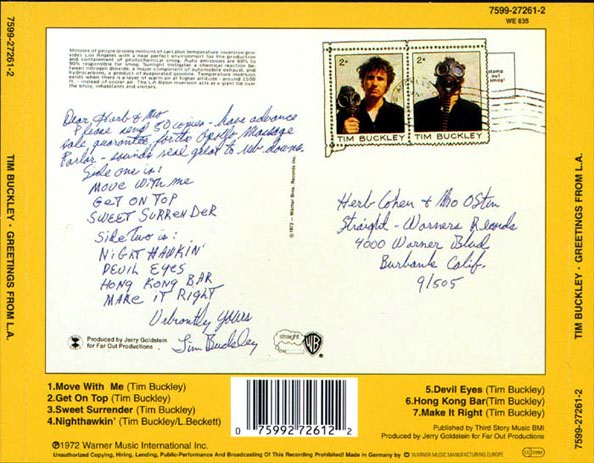 7599-27261-2
WE 835
7599-27261-2
TIM BUCKLEY · GREETINGS FROM L.A.
Millions of people driving millions of cars plus temperature inversion provides Los Angeles with a near perfect environment for the production
and containment of photochemical smog. Auto emissions are 60% to
90% responsible for smog. Sunlight
hydrocarbons, a product of evaporated gasoline. Temperature inversion
exists when there is a layer of warm air at higher altitude - around 1500
ft. - instead of cooler air. The L.A. Basin inversion acts as a giant lid over
the smog, inhabitants and visitors.
stamp
out
smog!
TIM BUCKLEY
TIM BUCKLEY
Dear Herb & Mo
Please send 50 copies - have advance
sale guarantee for the Apollo Massage
Parlor - sounds real great to rub downs
Side one is:
MOVE WITH ME
GET ON TOP
SWEET SURRENDER
Side TWO is:
NIGHT HAWKIN'
DEVIL EYES
HONG KONG BAR
MAKE IT RIGHT
Urbantly Yours
Tim Buckley
©1972 - Warner Bros. Records Inc.
Herb Cohen & Mo Ostin
Straight - Warners Records
4000 Warner Blvd
Burbank Calif.
91505
Produced by Jerry Goldstein
for Far Out Productions
straight
WB
1.Move With Me (Tim Buckley)
2.Get On Top (Tim Buckley)
3.Sweet Surrender (Tim Buckley)
4.Nighthawkin' (Tim Buckley/L.Beckett)
0 75992 72612 2
5.Devil Eyes (Tim Buckley)
6.Hong Kong Bar(Tim Buckley)
7.Make It Right (Tim Buckley)
Published by Third Story Music BMI
Produced by Jerry Goldstein for Far Out Productions
℗1972 Warner Music International Inc.
Unauthorized Copying, Hiring, Lending, Public-Performance And Broadcasting Of This Recording Prohibited! Made in Germany by WARNER MUSIC MANUFACTURING EUROPE
TIM BUCKLEY · GREETINGS FROM L.A.
7599-27261-2